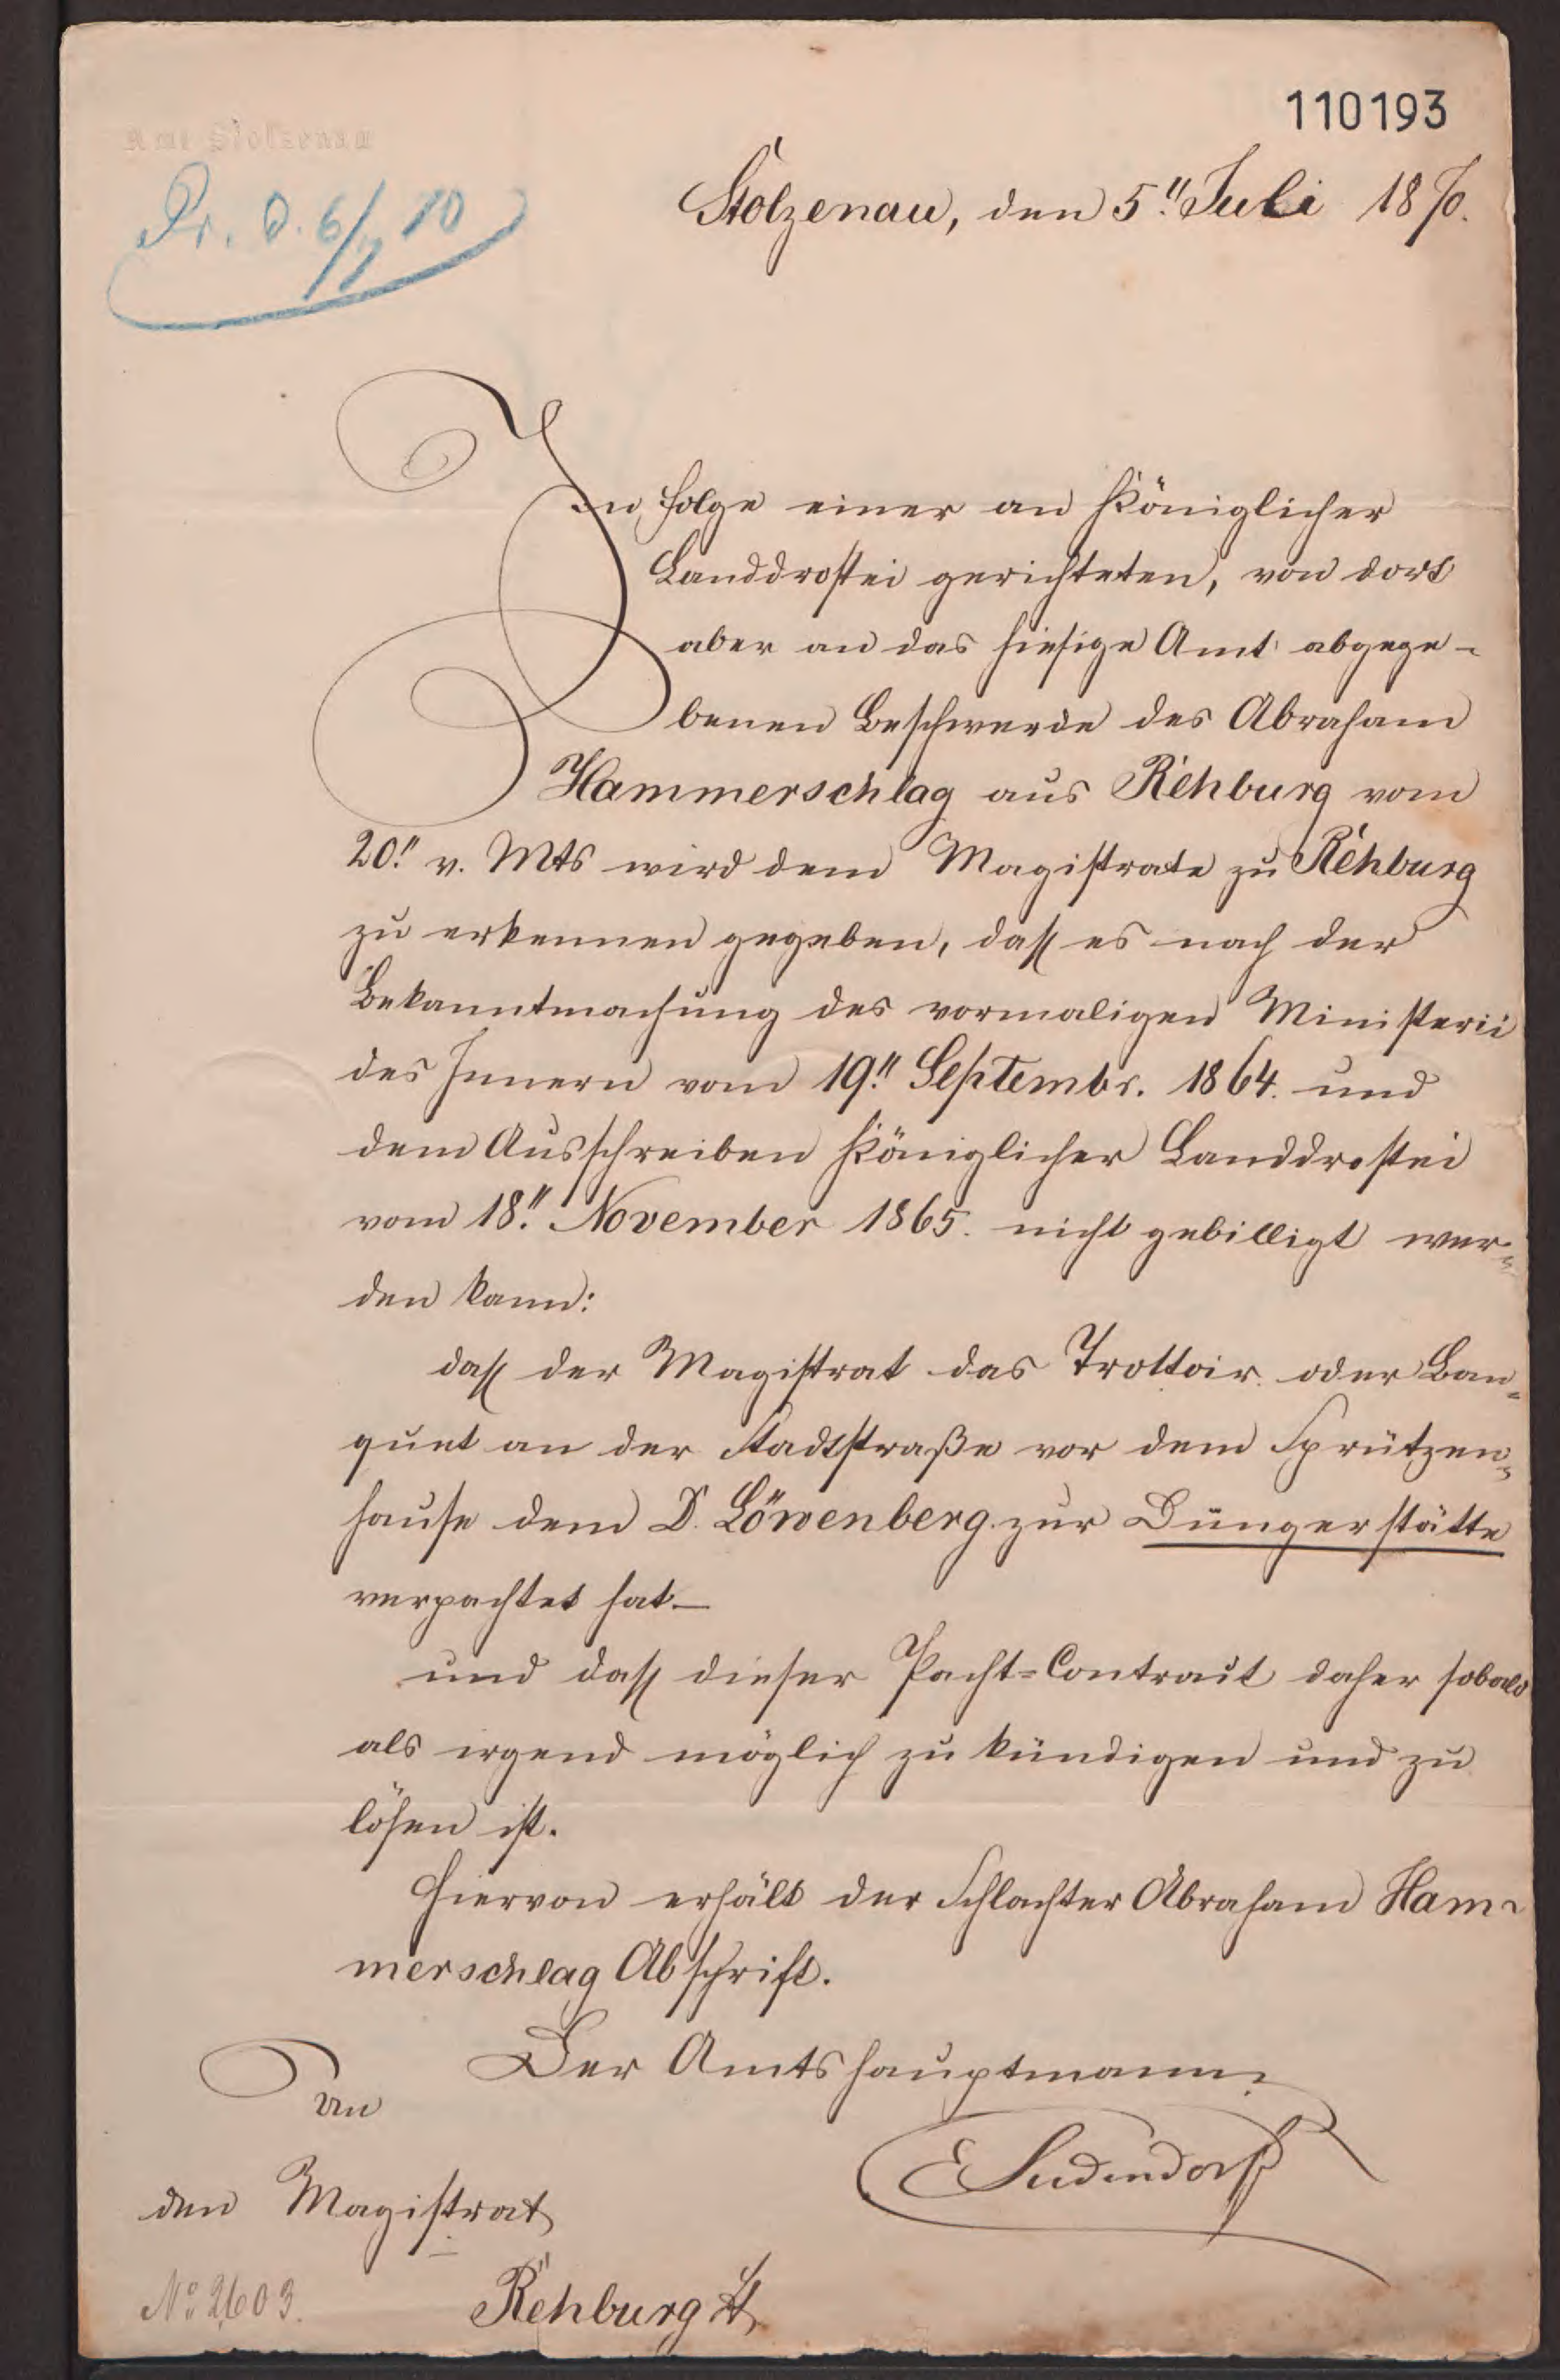 110193
Amt Stolzenau
Pr. d. 6/7 70
Stolzenau, den 5.ʺ Juli 1870.
In Folge einer an Königlicher
Landdrostei gerichteten, von dort
aber an das hiesige Amt abgege-
benen Beschwerde des Abraham
Hammerschlag aus Rehburg vom
20.ʺ v. Mts wird dem Magistrate zu Rehburg
zu erkennen gegeben, daß es nach der
Bekanntmachung des vormaligen Ministerii
des Innern vom 19.ʺ Septembr. 1864. und
dem Ausschreiben Königlicher Landdrostei
vom 18.ʺ November 1865. nicht gebilligt wer-
den kann:
daß der Magistrat das Trottoir oder Ban-
quet an der Stadtstraße vor dem Sprützen-
hause dem D. Löwenberg zur Düngerstätte
verpachtet hat –
und daß dieser Pacht=Contract daher sobald
als irgend möglich zu kündigen und zu
lösen ist.
Hiervon erhält der Schlachter Abraham Ham-
merschlag Abschrift.
Der Amtshauptmann.
An
E Sudendorf
den Magistrat
Rehburg
No 2603.